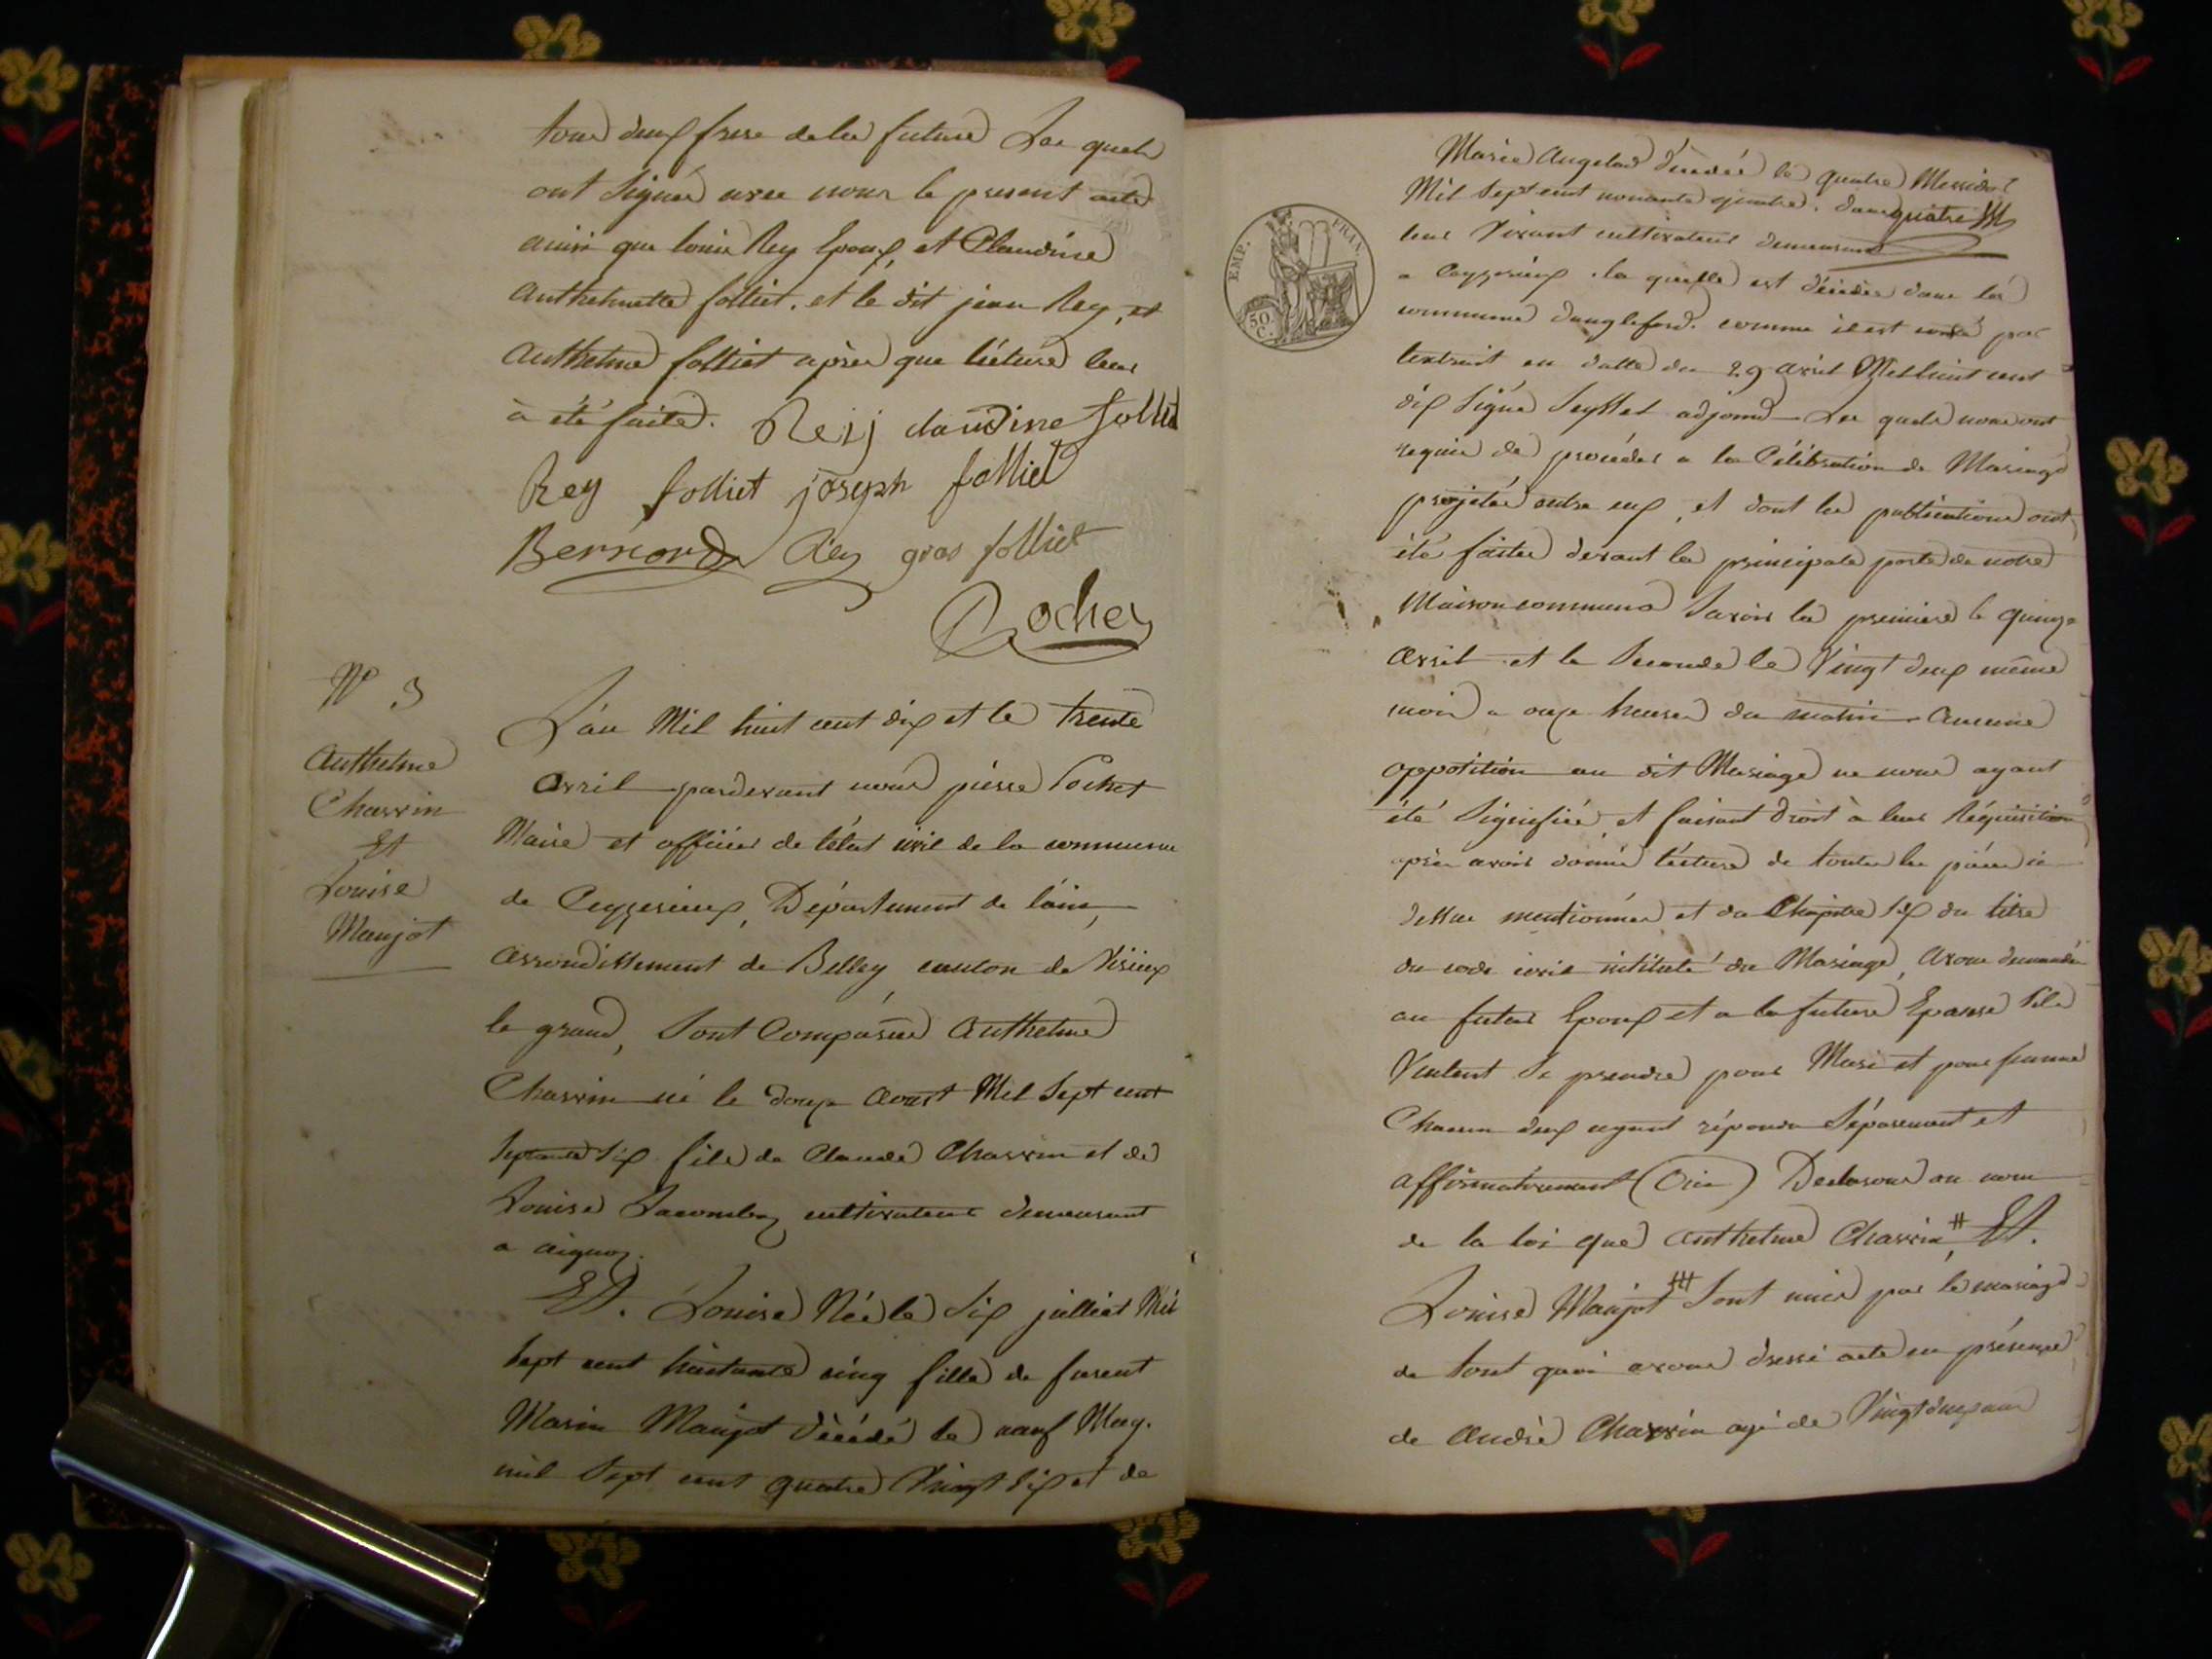 tous deux frere de la future Les quels
ont Signés avec nous le present acte
ainsi que louis Rey Epoux, et Claudine
Anthelmette folliet, et le dit jean Rey, et
Anthelme folliet après que lécture leur
à été faite. Reij claudine follied
Rey folliet joseph folliet
Bernord Rey gros folliet
Pochet
N° 3
Anthelme
Charvin
Et
Louise
Maujot
L'an Mil huit cent dix et le trente
Avril pardevant nous pierre Pochet
Maire et officier de létat civil de la commune
de Ceyzerieux, Département de láin,
Arrondissement de Belley, canton de Virieux
le grand, Sont Comparus Anthelme
Charvin né le douze Aoust Mil Sept cent
Septante Six fils de Claude Charvin et de
Louise cultivateur demeurant
a aignoz.
Et. Louise Née le Six juilliet Mil
Sept cent huitante cinq fille de furent
Marin Maujot décédé le neuf May.
mil Sept cent quatre Vingt Six et de
EMP. FRAN.
50
C.
Marie décédée le quatre Messidor
Mil Sept cent nonante quatre. dans quatre
leur Vivant cultivateur demeurant
a Ceyzerieux. la quelle est décédée dans la
commune dangleford. comme il est par
lextrait en datte du 29 avril Mil huit cent
dix Signé Seyssel adjoind Les quels nous ont
requis de procéder a la Célébration de Mariage
projetée entre eux, et dont les publications ont
été faites devant la principale porte de notre
Maison commune Savoir la premiere le quinze
Avril et la Seconde le Vingt deux même
mois a onze heures du matin Aucune
oppotition au dit Mariage ne nous ayant
été Signifiée, et faisant droit à leur Réquisition
après avoir donné lécture de toutes les piéces ci
dessus mentionnées et du Chapitre Six du titre
du code civil intitulé du Mariage, Avons demandé
au futur Epoux et a la future Epouse Sils
Veulent Se prendre pour Mari et pour femme
Chacun deux ayant répondu Séparement et
affirmativement (Oui) Declarons au nom
de la loi que Anthelme Charvin, # Et.
Louise Maujot ### Sont unis par le mariage
de tout quoi avons dressé acte en présence
de André Charvin agé de Vingt deux ans